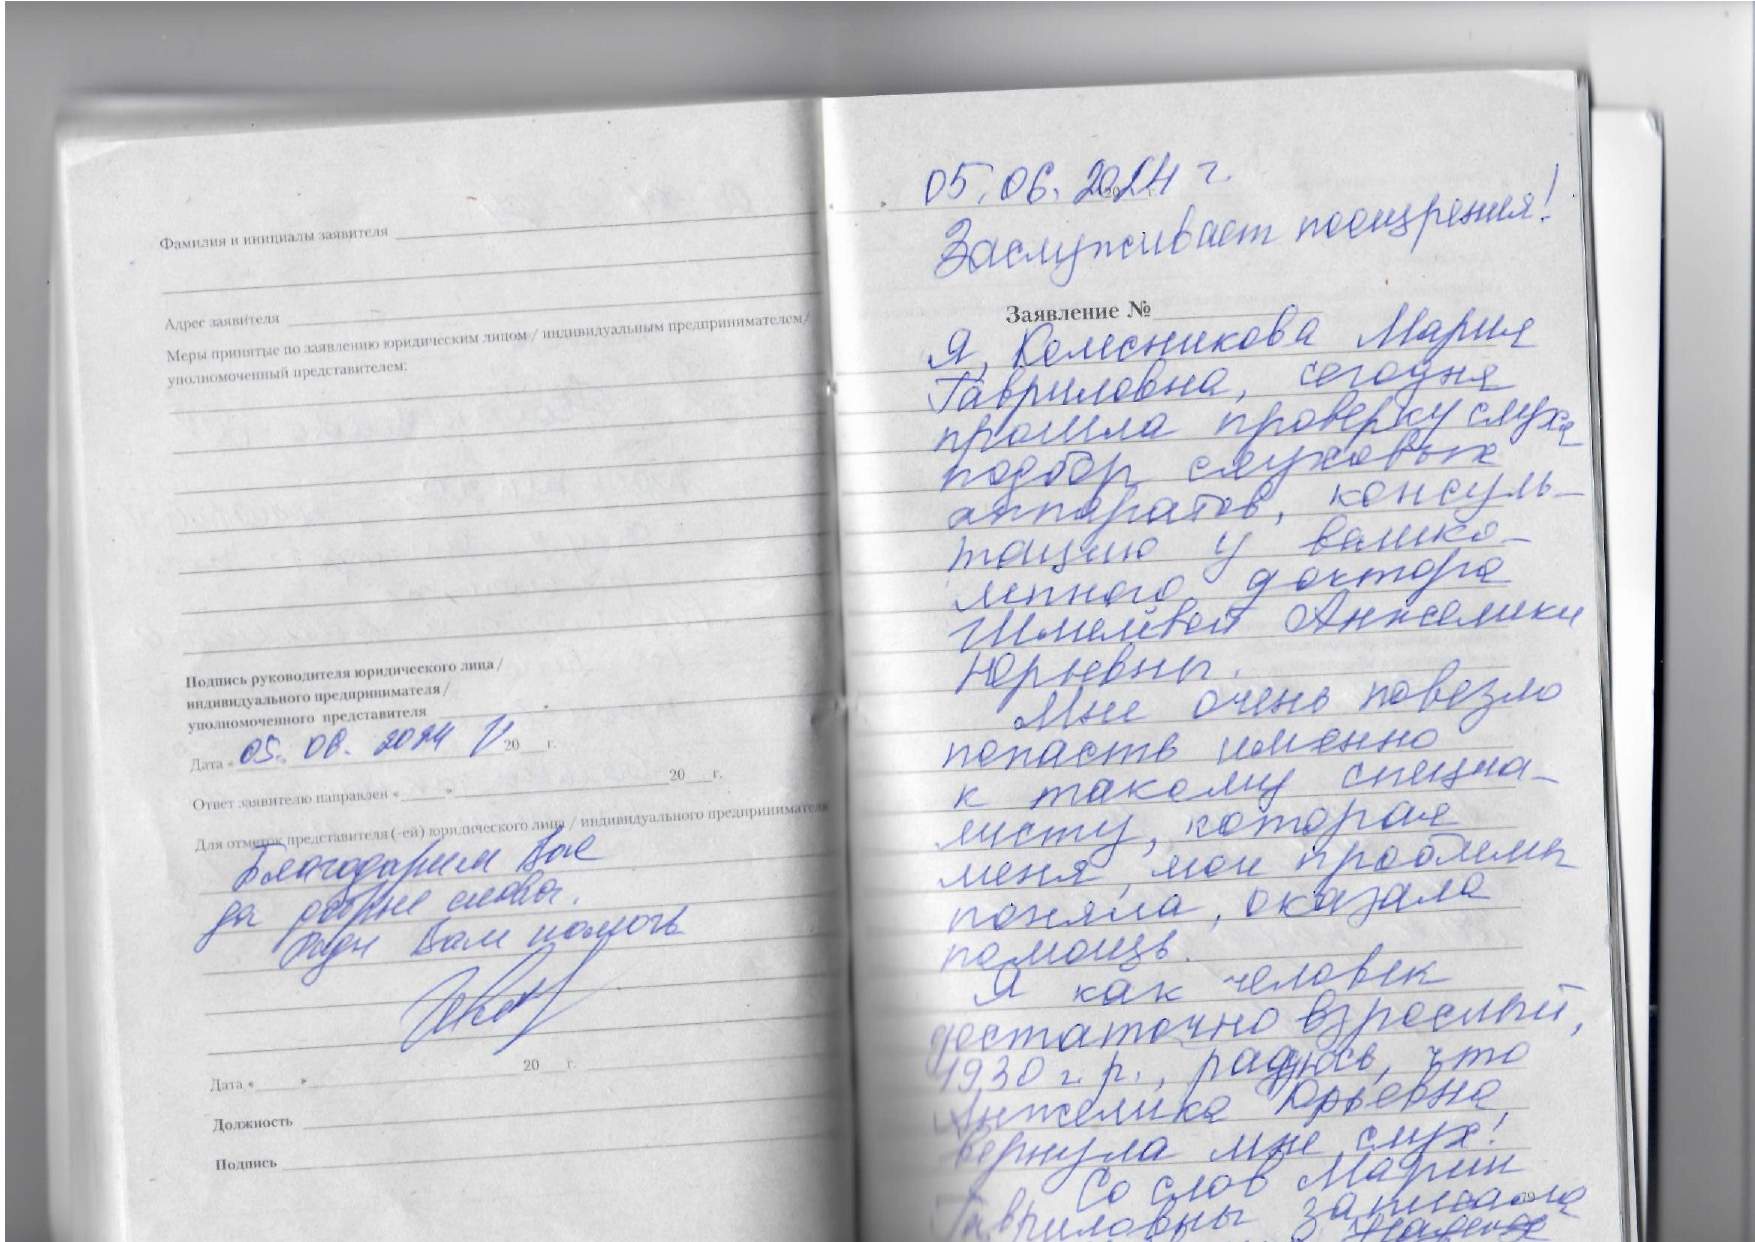 Фамилия и инициалы заявителя
Адрес заявителя
Меры принятые по заявлению юридическим лицом / индивидуальным предпринимателем/
уполномоченный представителем:
Подпись руководителя юридического лица /
индивидуального предпринимателя /
уполномоченного представителя
Дата « 05. 06. 2024 г. 20 г.
Ответ заявителю направлен « » 20 г.
Для отметок представителя (-ей) юридического лица / индивидуального предпринимателя
Благодарим Вас
за добрые слова.
Рады Вам помочь
Дата « » 20 г.
Должность
Подпись
05. 06. 2024 г.
Заслуживает поощрения!
Заявление №
Я, Колесникова Мария
Гавриловна, сегодня
прошла проверку слуха
подбор слуховых
аппаратов, консуль-
тацию у велико-
лепного доктора
Шмелёвой Анжелики
Юрьевны.
Мне очень повезло
попасть именно
к такому специа-
листу, которая
меня, мои проблемы
поняла, оказала
помощь.
Я как человек
достаточно взрослый,
1930 г. р., радуюсь, что
Анжелика Юрьевна
вернула мне слух!
Со слов Марии
Гавриловны записала